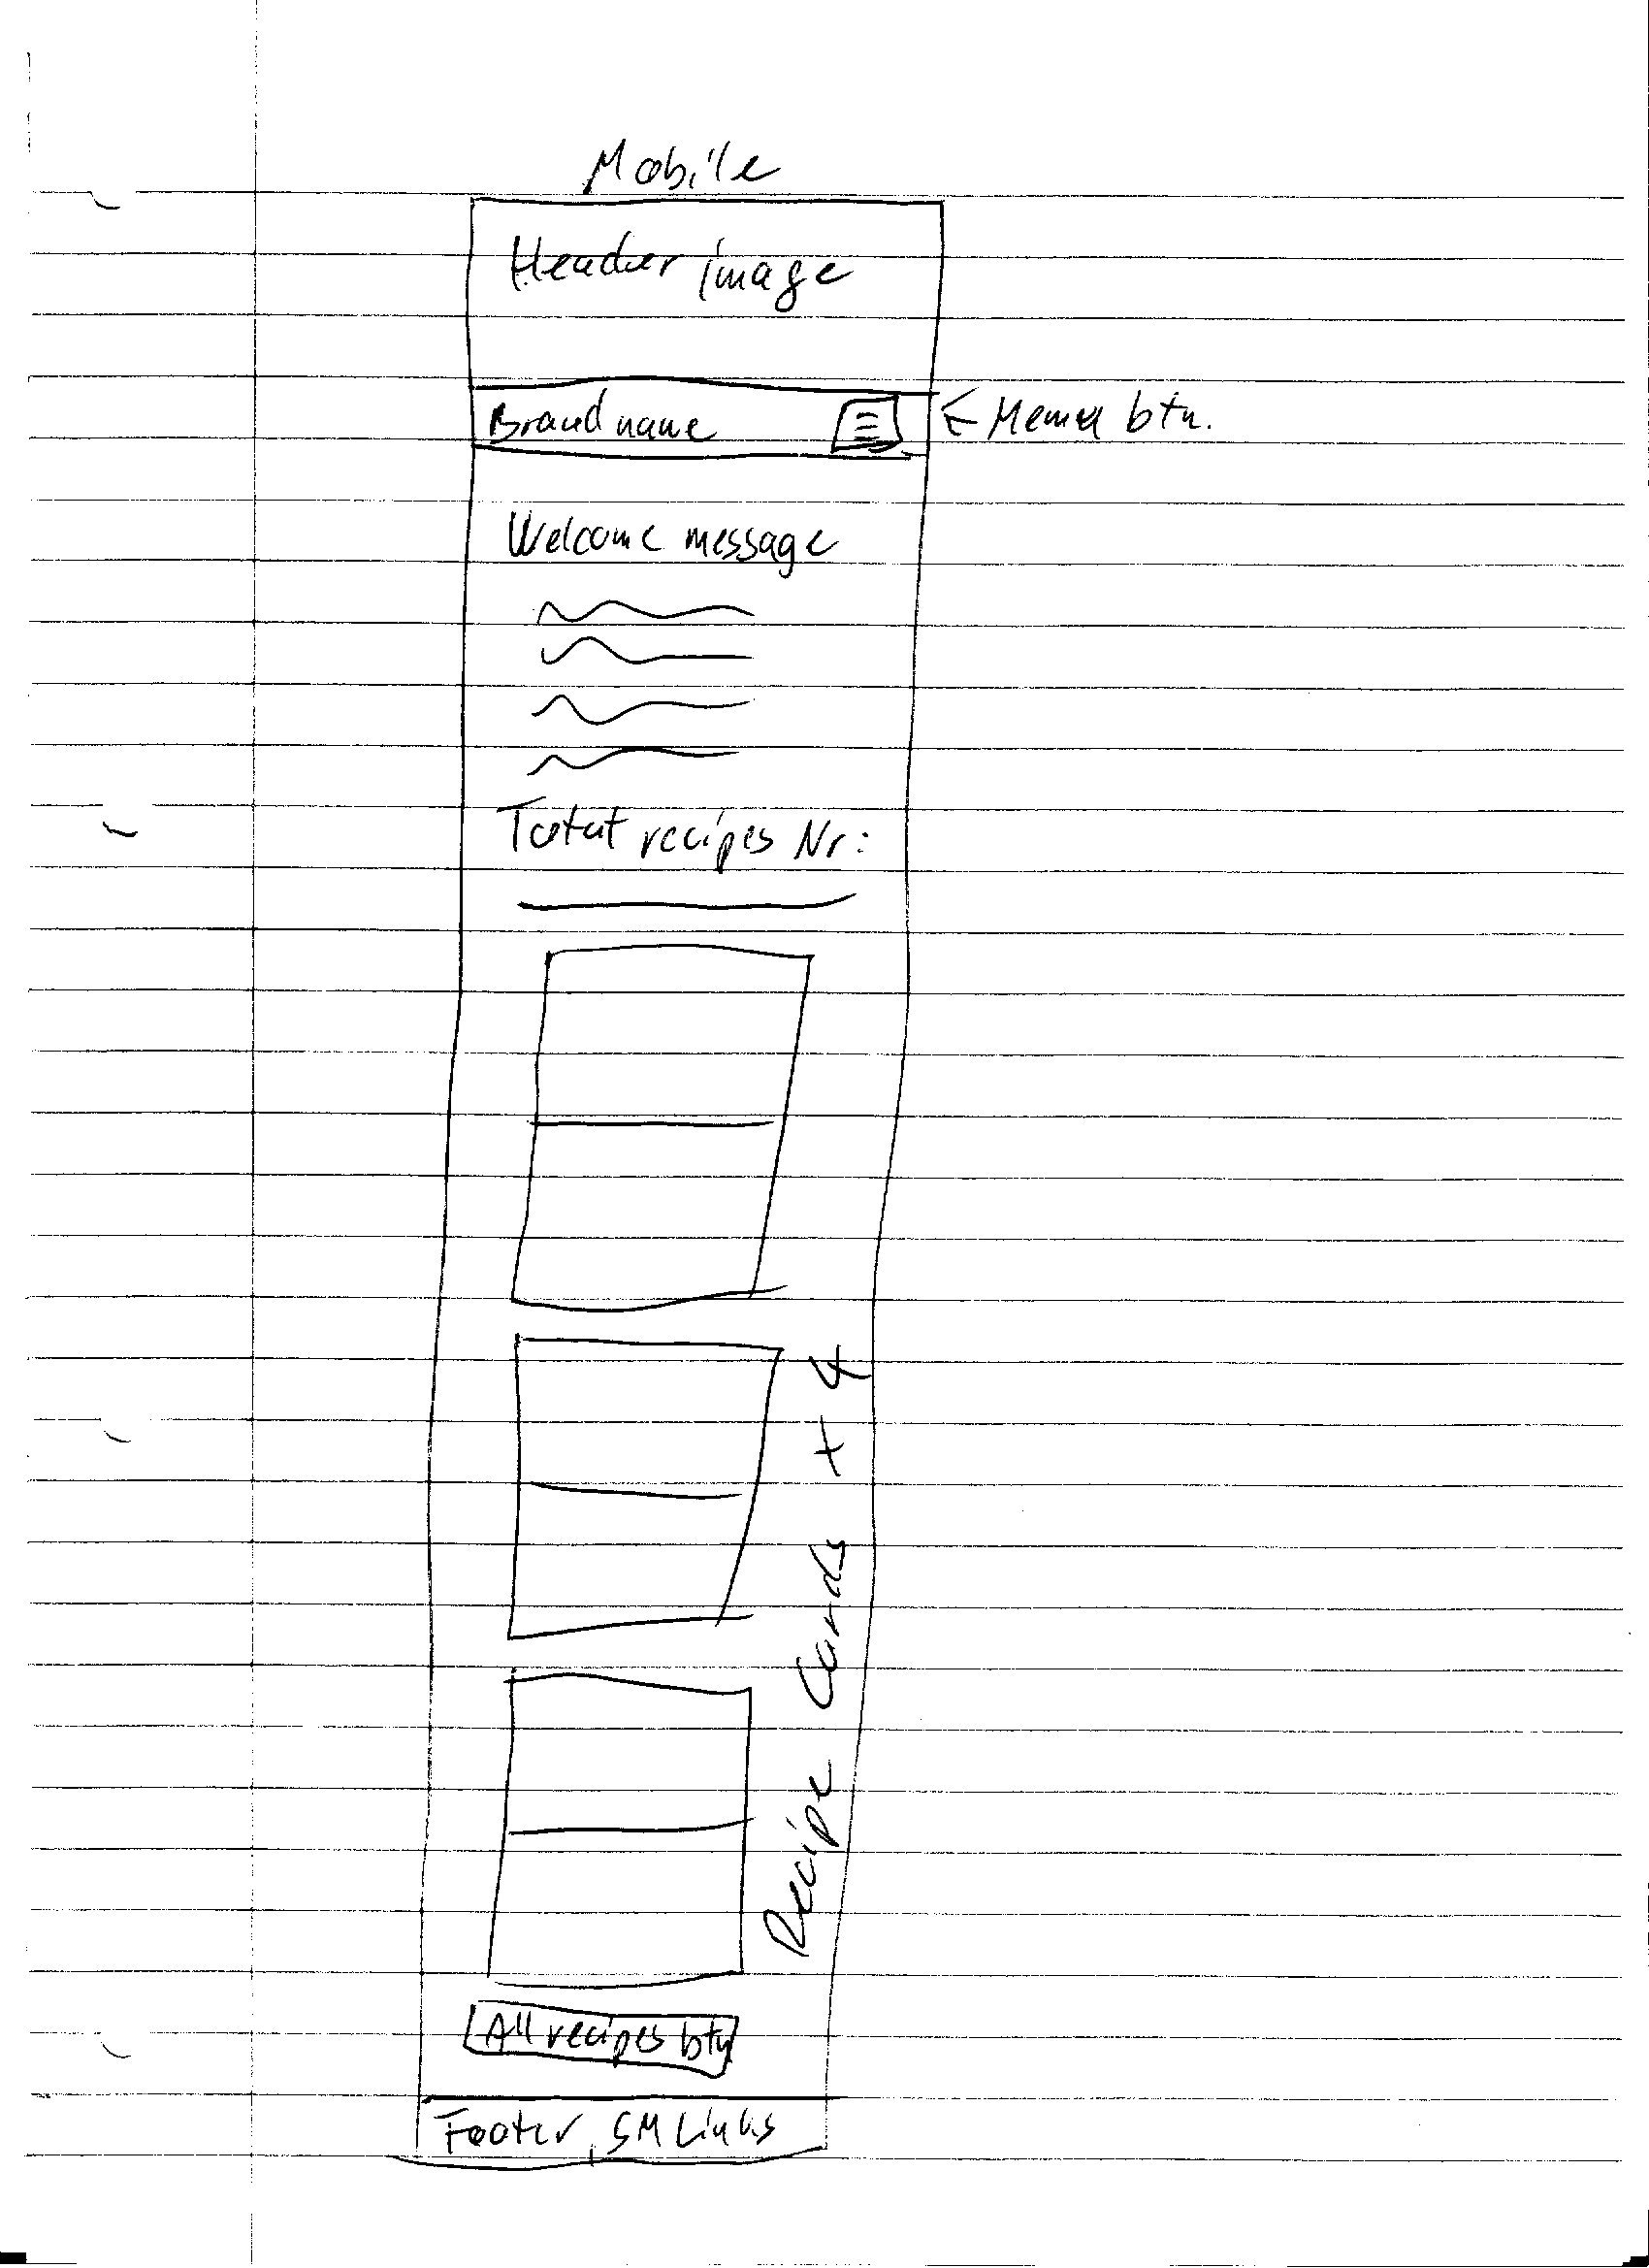 Mobile
Header image
Brand name
← Menu btn.
Welcome message
Total recipes Nr:
Recipe Cards x 4
All recipes btn
Footer, SM Links